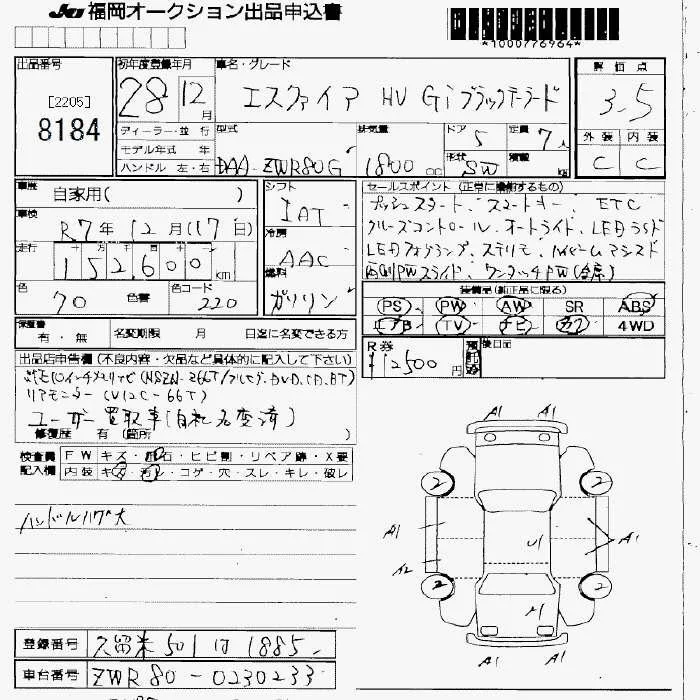 JU 福岡オークション出品申込書
*1000776964*
出品番号
[2205]
8184
初年度登録年月
28 12月
車名・グレード
エスクァイア HV Gi ブラックテーラード
評価点
3.5
外装 内装
C C
ディーラー・並 行
モデル年式 年
ハンドル 左・右
型式
DAA-ZWR80G
排気量
1800 cc
ドア
5
形状
SW
定員
7人
積載
kg
車歴
自家用( )
車検
R7年12月(17日)
走行
152,600 km
色
70
色書
色コード
220
シフト
IAT
冷房
AAC
燃料
ガソリン
セールスポイント (正常に機能するもの)
プッシュスタート、スマートキー、ETC
クルーズコントロール、オートライド、LEDライト
LEDフォグランプ、ステリモ、ハイビームアシスト
両側PWスライド、ワンタッチPW(全席)
装備品(純正品に限る)
PS PW AW SR ABS
エアB TV ナビ カワ 4WD
保証書
有・無
名変期限 月 日迄に名変できる方
R券
¥12500円
預託済
後日品
出品店申告欄 (不良内容・欠品など具体的に記入して下さい)
純正10インチメモリナビ(NSZN-Z66T/フルセグ.DVD.CD.BT)
リアモニター(V12C-66T)
ユーザー買取車(自社名変済)
修復歴 有 (箇所 )
検査員記入欄
FW キズ・飛石・ヒビ割・リペア跡・X要
内装 キズ・汚レ・コゲ・穴・スレ・キレ・破レ
ハンドルハゲ大
A1 A1
2 2
A1
A2
U1
A1
2 2
U1
A1 A1
登録番号
久留米501は1885
車台番号
ZWR80-0230233